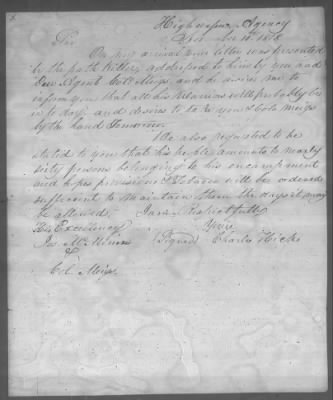 Highwassee Agency
Sir
On my arrival your letter was presented
by the path Killer, addressed to him by you and
Our Agent Col. Meigs, and he desires me to
inform you that all his Warriors will probably be
in to day, and desires to take you & Colo Meigs
by the hand Tomorrow.
He also requested to be
stated to you that his people amounts to nearly
sixty persons belonging to his encampment
and hopes provisions & Tobacco will be ordered
sufficient to maintain them the days it may
be allowed. I am Respectfully
Yours
His Excellency
Jos. McMinn (Signed) Charles Hicks
&
Col. Meigs